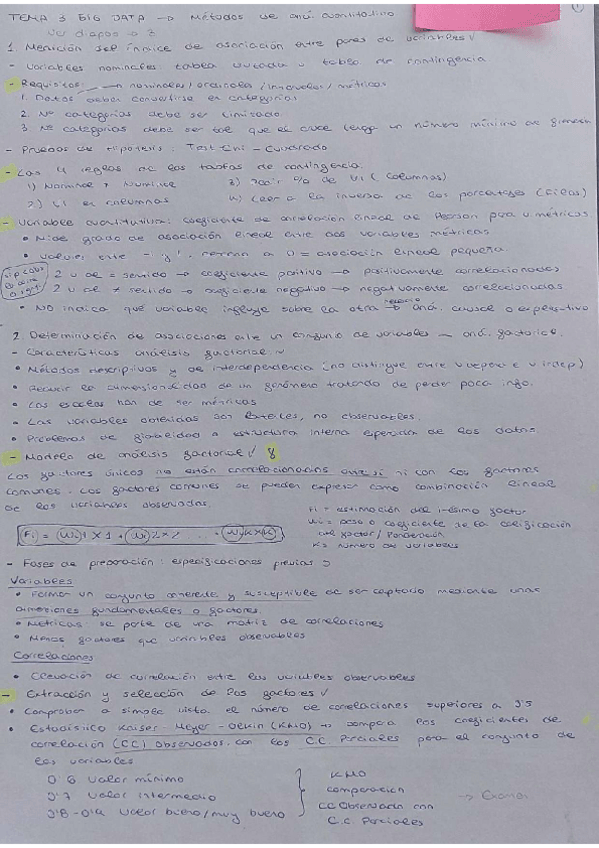 TEMA 3 BIG DATA → Métodos de aná. cuantitativo
Ver diapos → 3
1. Medición del índice de asociación entre pares de variables √
- Variables nominales: tabla cruzada o tabla de contingencia
- Requisitos: → nominales/ordinales/intervalos/métricas
1. Datos deben convertirse en categorías
2. Nº categorías debe ser limitado
3. Nº categorías debe ser tal que el cruce tenga un número mínimo de
- Pruebas de Hipótesis: Test Chi-Cuadrado
- Las 4 reglas de las tablas de contingencia.
1) Nominal y Nominal 3) % de VI (columnas)
2) VI en columnas 4) Leer a la inversa de los porcentajes (filas)
- Variable cuantitativa: coeficiente de correlación lineal de Pearson para v métricas.
• Mide grado de asociación lineal entre dos variables métricas
• Valores entre -1 y 1. a 0 = asociación lineal pequeña
2 v al = sentido → coeficiente positivo → positivamente correlacionadas
2 v al ≠ sentido → coeficiente negativo → negativamente correlacionadas
• NO indica qué variables influye sobre la otra → aná. causal o explicativo
2. Determinación de asociaciones entre un conjunto de variables — aná. factorial.
- Características análisis factorial ~
• Métodos descriptivos y de interdependencia (no distingue entre v depend e v indep)
• Reducir la dimensionalidad de un fenómeno tratando de perder poca info.
• Las escalas han de ser métricas
• Las variables obtenidas son latentes, no observables.
• Problemas de fiabilidad o estructura interna esperada de los datos.
- Modelo de análisis factorial √ 8
Los factores únicos no están correlacionados entre sí ni con los factores
comunes. Los factores comunes se pueden expresar como combinación lineal
de las variables observadas.
Fi = estimación del i-ésimo factor
Wi = peso o coeficiente de la calificación
del factor / Ponderación
K = número de variables
Fi = Wi1 X1 + Wi2 X2 ... + WiK XK
- Fases de preparación: especificaciones previas
Variables
• Formar un conjunto coherente y susceptible de ser captado mediante unas
dimensiones fundamentales o factores.
• Métricas: se parte de una matriz de correlaciones
• Menos factores que variables observables
Correlaciones
• Elevación de correlación entre las variables observables
- Extracción y selección de los factores √
• Comprobar a simple vista el número de correlaciones superiores a 0'5
• Estadístico Kaiser-Meyer-Olkin (KMO) → compara los coeficientes de
correlación (CC) observados con los C.C. Parciales para el conjunto de
las variables
0'6 Valor mínimo
0'7 Valor intermedio
0'8-0'9 Valor bueno/muy bueno
KMO
comparación
CC Observados con
C.C. Parciales
→ Examen